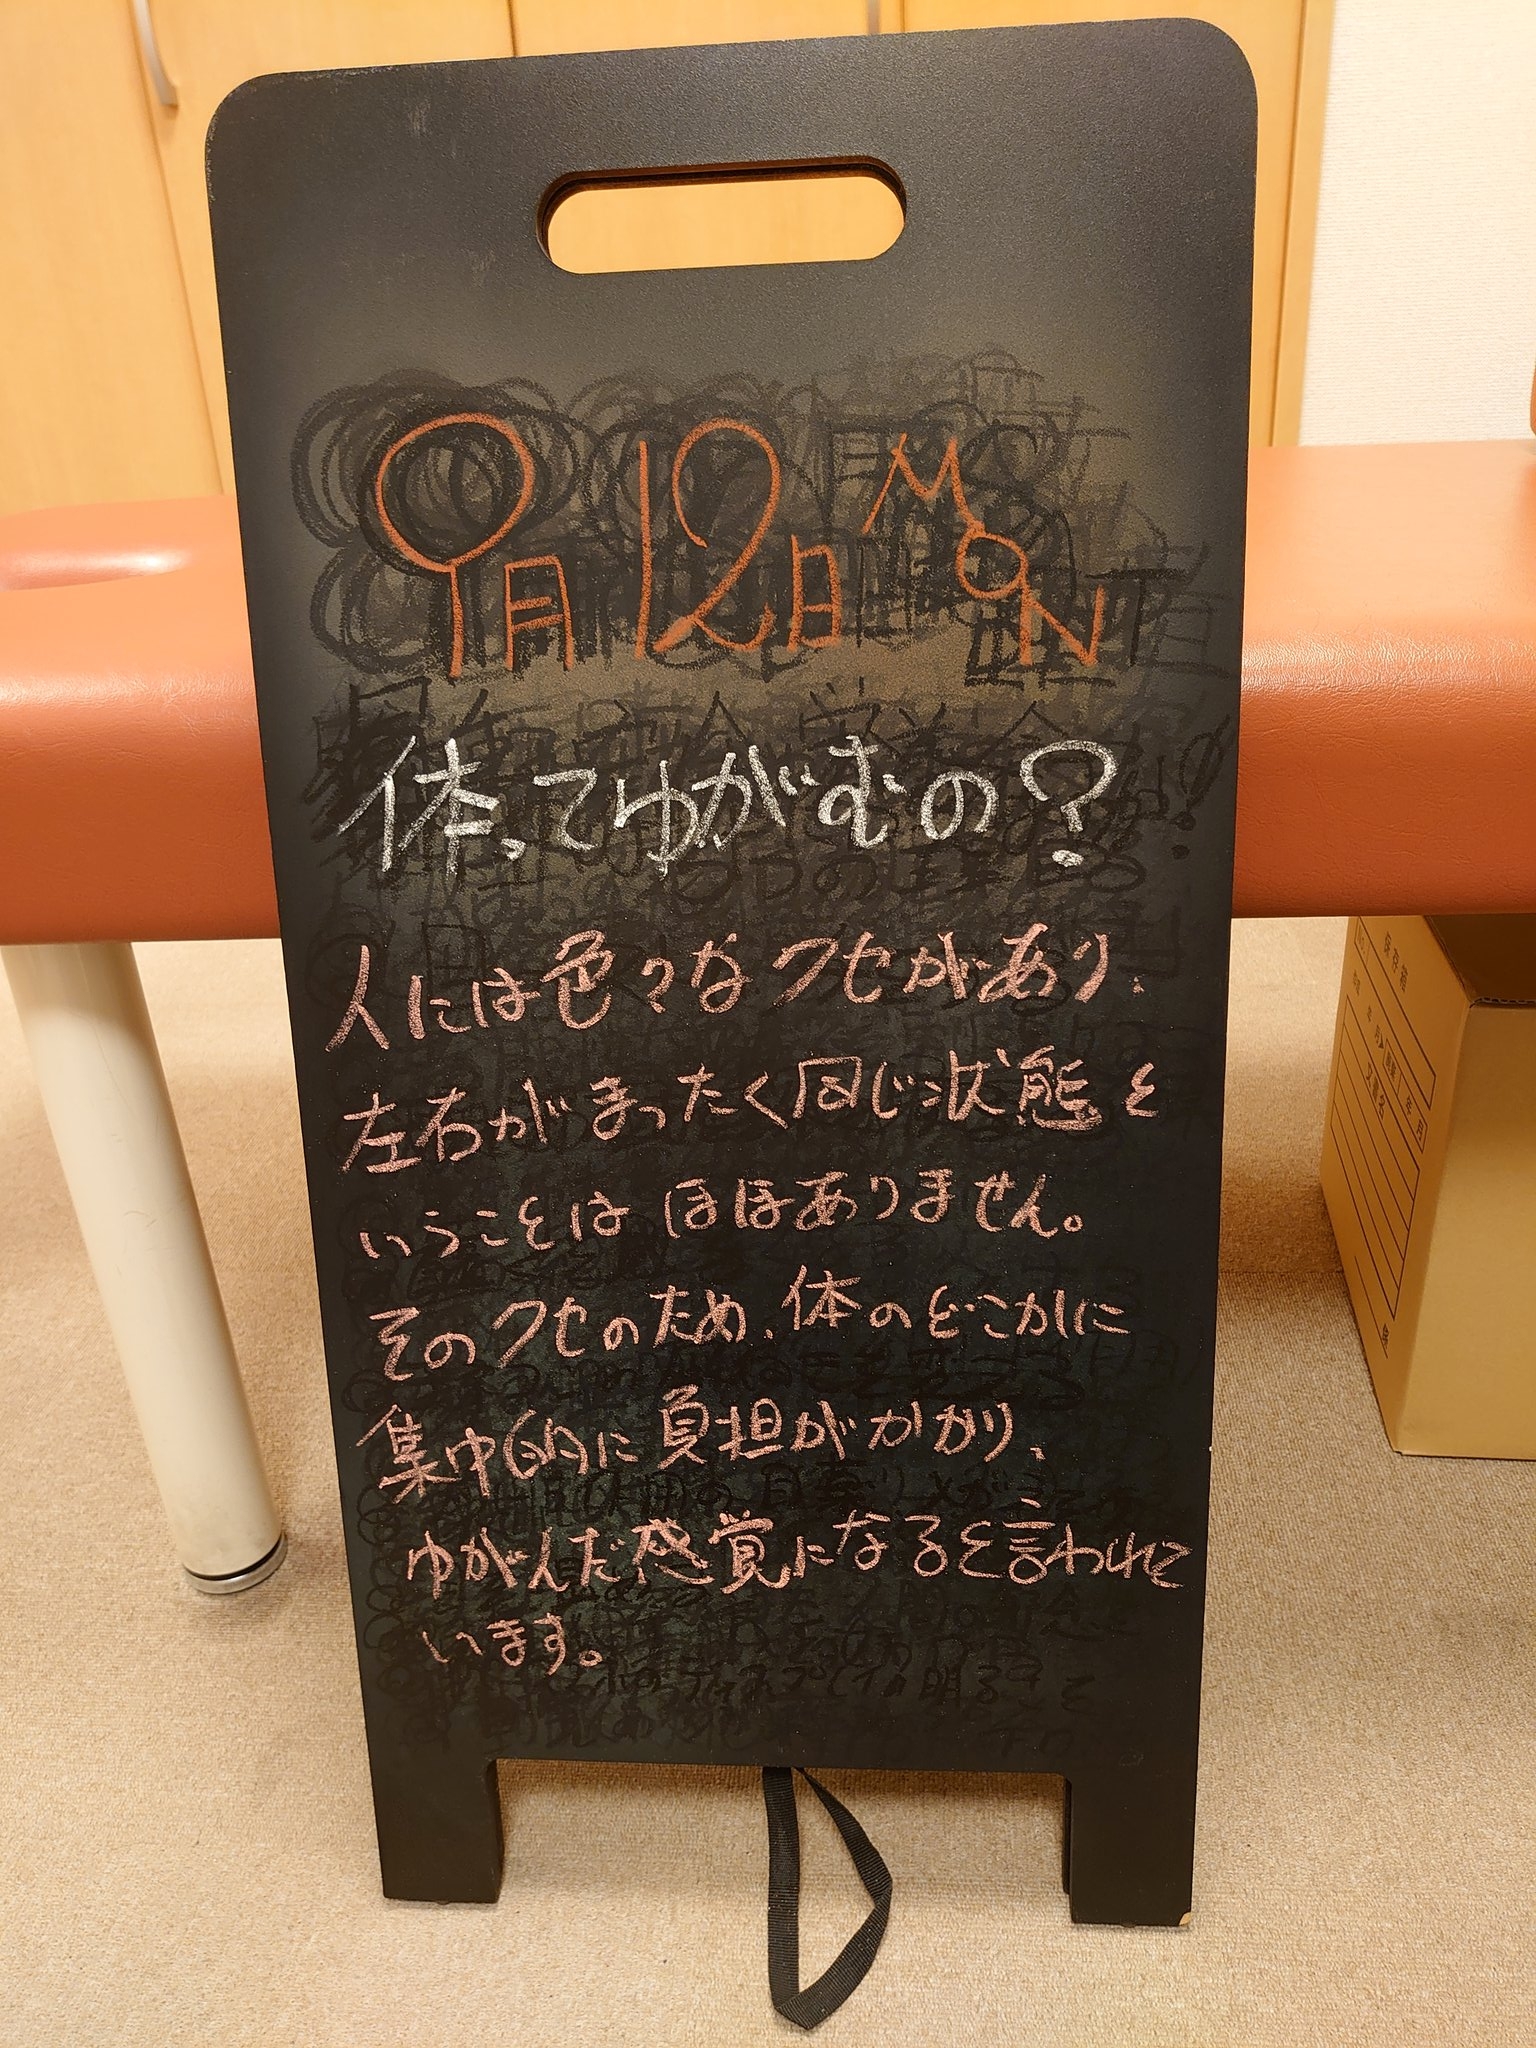 9月12日 MON
体ってゆがむの?
人には色々なクセがあり、
左右がまったく同じ状態と
いうことは ほぼありません。
そのクセのため、体のどこかに
集中的に負担がかかり、
ゆがんだ感覚になると言われて
います。